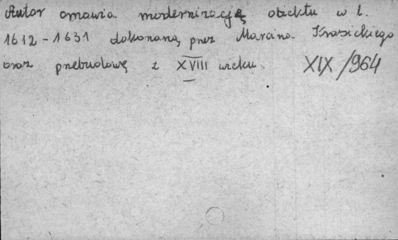 Autor omawia modernizację obiektu w l.
1612-1631 dokonaną przez Marcina Krasickiego
oraz przebudowę z XVIII wieku. XIX/964